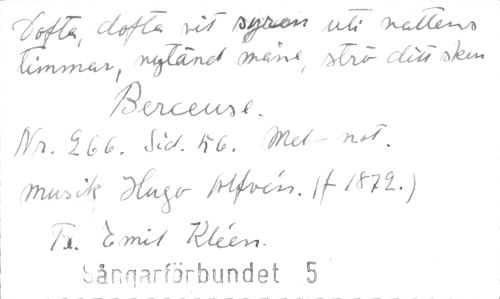 Dofta, dofta vit syren uti nattens
timmar, nytänd måne, strö ditt sken
Berceuse.
Nr. 266. Sid. 56. Mel-not.
musik Hugo Alfvén. (f 1872.)
T. Emil Kléen.
Sångarförbundet 5